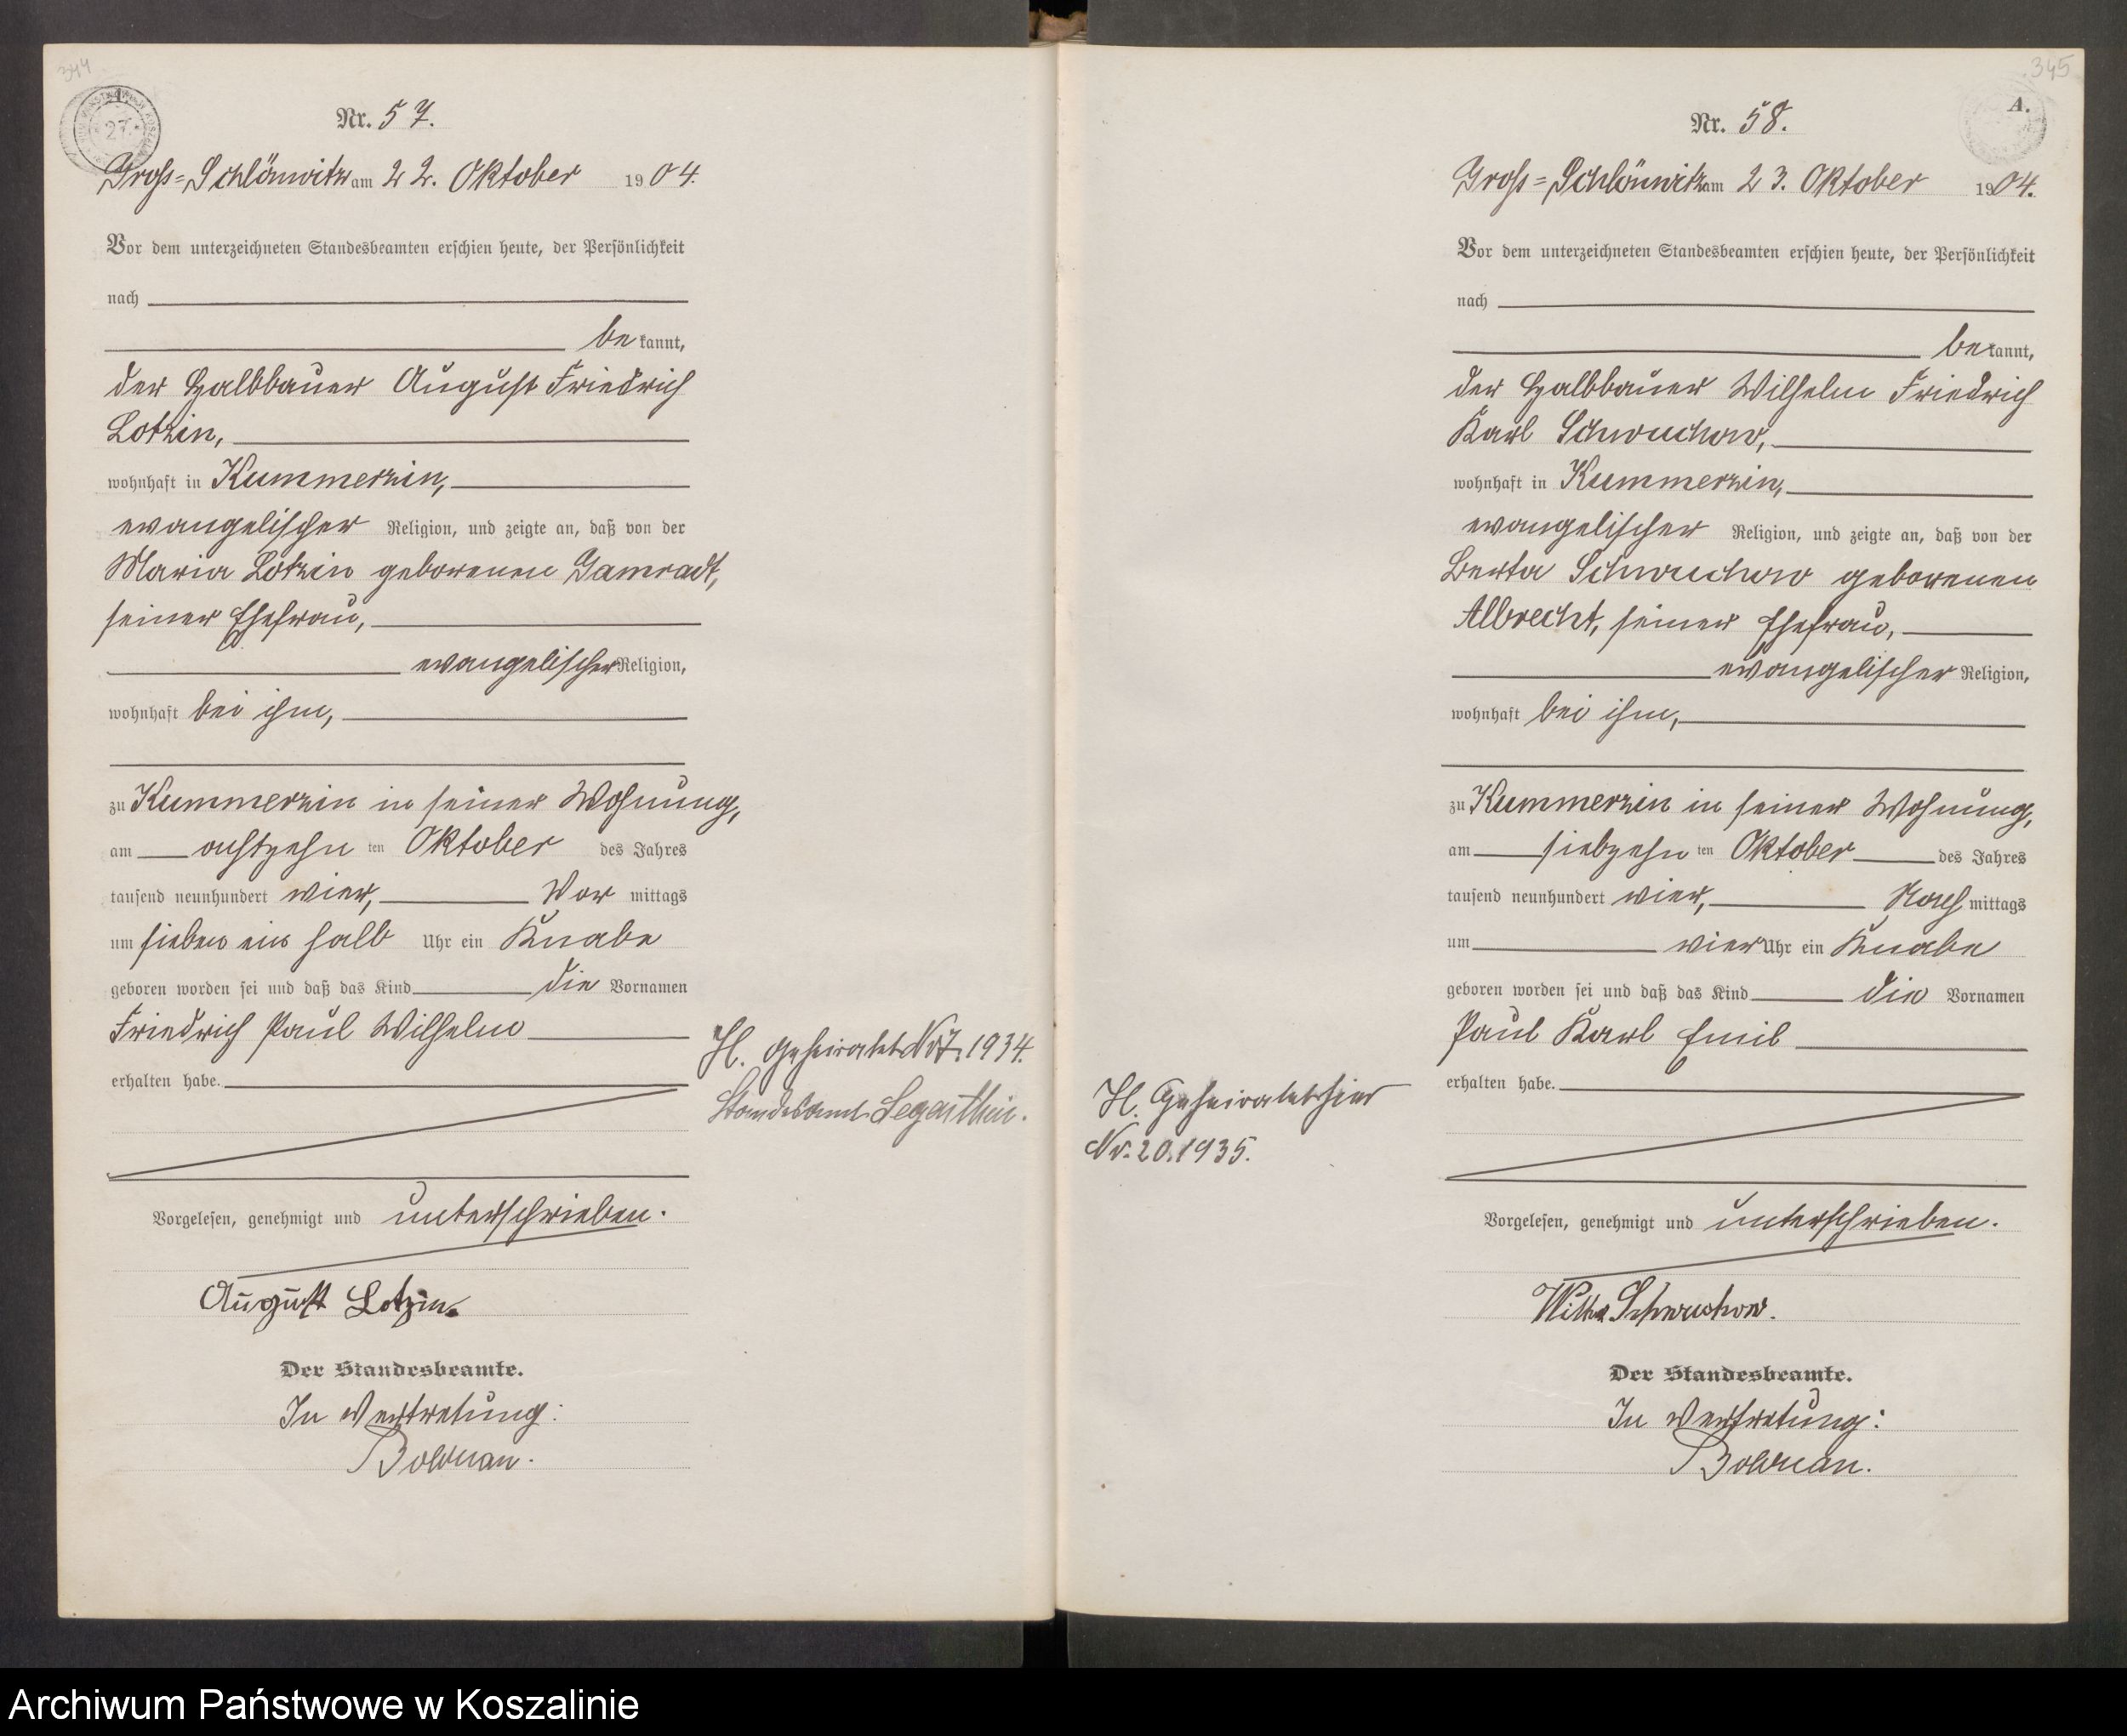 344
27
Nr. 57.
Gross=Schlönwitz am 22. Oktober 1904.
Vor dem unterzeichneten Standesbeamten erschien heute, der Persönlichkeit
nach
bekannt,
der Halbbauer August Friedrich
Lotzin,
wohnhaft in Kummerzin,
evangelischer Religion, und zeigte an, daß von der
Maria Lotzin geborenen Gamradt,
seiner Ehefrau,
evangelischer Religion,
wohnhaft bei ihm,
zu Kummerzin in seiner Wohnung,
am achtzehnten Oktober des Jahres
tausend neunhundert vier, Vormittags
um sieben ein halb Uhr ein Knabe
geboren worden sei und daß das Kind die Vornamen
Friedrich Paul Wilhelm
erhalten habe.
H. Geheiratet Nr 7. 1934.
Standesamt Segenthin.
Vorgelesen, genehmigt und unterschrieben.
August Lotzin.
Der Standesbeamte.
In Vertretung:
345
A.
Nr. 58.
Gross=Schlönwitz am 23. Oktober 1904.
Vor dem unterzeichneten Standesbeamten erschien heute, der Persönlichkeit
nach
bekannt,
der Halbbauer Wilhelm Friedrich
Karl Schwuchow,
wohnhaft in Kummerzin,
evangelischer Religion, und zeigte an, daß von der
Berta Schwuchow geborenen
Albrecht, seiner Ehefrau,
evangelischer Religion,
wohnhaft bei ihm,
zu Kummerzin in seiner Wohnung,
am siebzehnten Oktober des Jahres
tausend neunhundert vier, Nachmittags
um vier Uhr ein Knabe
geboren worden sei und daß das Kind die Vornamen
Paul Karl Emil
erhalten habe.
H. Geheiratet hier
Nr. 20. 1935.
Vorgelesen, genehmigt und unterschrieben.
Wilh. Schwuchow.
Der Standesbeamte.
In Vertretung:
Archiwum Państwowe w Koszalinie